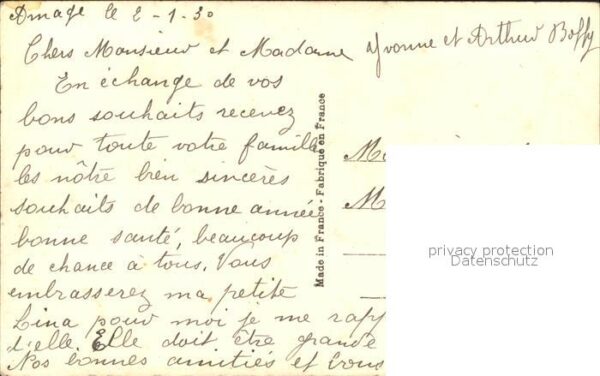 Amage le 2-1-30
Chers Monsieur et Madame Yvonne et Arthur Boffy
En échange de vos
bons souhaits recevez
pour toute votre famille
les nôtre bien sincères
souhaits de bonne année
bonne santé, beaucoup
de chance à tous. Vous
embrasserez ma petite
Lina pour moi je me rapp
d'elle. Elle doit être grande
Nos bonnes amitiés et vous
Made in France - Fabriqué en France
M
M
privacy protection
Datenschutz